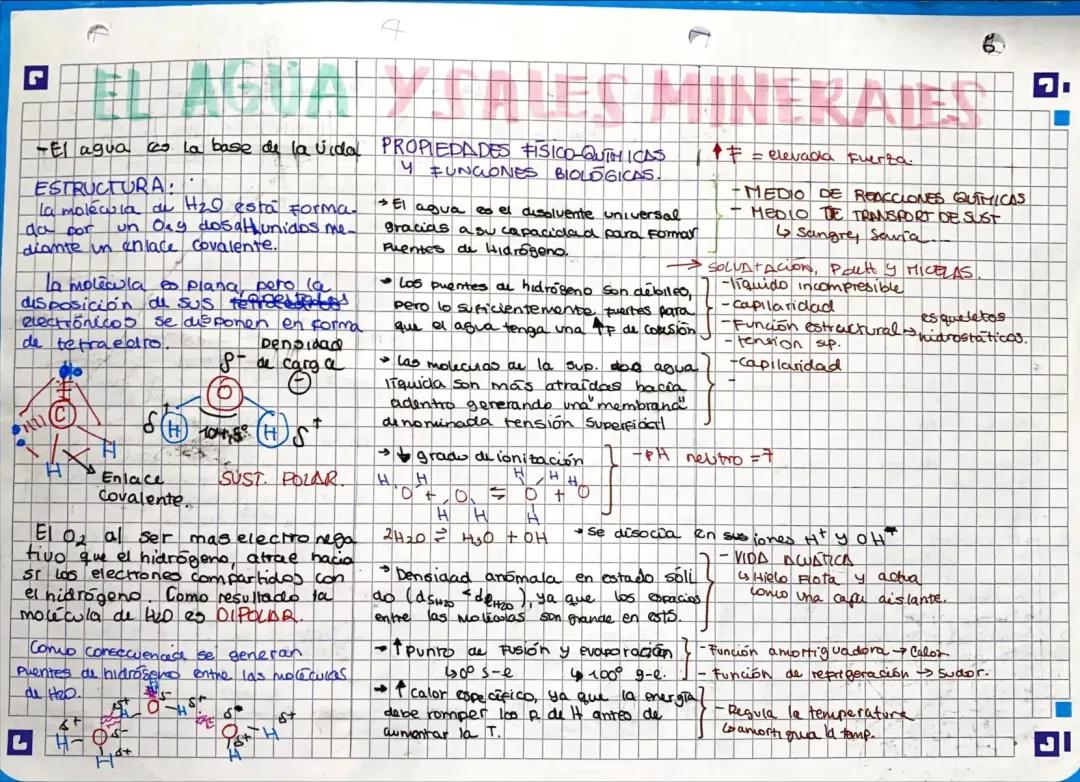 EL AGUA Y SALES MINERALES
-El agua es la base de la vida!
ESTRUCTURA:
la molécula de H2O está forma-
da por un O2 y dos H unidos me-
diante un enlace covalente.
La molécula es plana, pero la
disposición de sus
electrónicos se disponen en forma
de tetraedro.
Densidad
de carga
δ-
-
O
C
H
H
δ+
H
104,5º
H
δ+
Enlace
covalente.
SUST. POLAR.
El O2 al ser mas electronega
tivo que el hidrógeno, atrae hacia
sí los electrones compartidos con
el hidrógeno. Como resultado la
molécula de H2O es DIPOLAR.
Como consecuencia se generan
Puentes de hidrógeno entre las moléculas
de H2O.
PROPIEDADES FÍSICO-QUÍMICAS
Y FUNCIONES BIOLÓGICAS.
→ El agua es el disolvente universal
gracias a su capacidad para formar
Puentes de Hidrógeno.
→ Los puentes de hidrógeno son débiles,
pero lo suficientemente fuertes para
que el agua tenga una ↑F de cohesión
→ Las moleculas de la sup. del agua
líquida son más atraídas hacia
adentro generando una "membrana"
denominada tensión superficial
→ ↓ grado de ionización
2H2O ⇌ H3O + OH
→ se disocia en iones H+ y OH-
→ Densidad anómala en estado sóli
do (dsH2O < deH2O), ya que los espacios
entre las moléculas son grande en estó.
→ ↑ Punto de fusión y evaporación
↳ 0º s-e
↳ 100º g-e.
→ ↑ calor específico, ya que la energía
debe romper los p. de H antes de
aumentar la T.
↑F = elevada fuerza.
- MEDIO DE REACCIONES QUÍMICAS
- MEDIO DE TRANSPORT DE SUST
↳ Sangre, Savia...
→ SOLVATACIÓN, P de H y MICELAS.
- líquido incompresible
- capilaridad
- Función estructural → esqueletos
hidrostáticos.
- tension sup.
- Capilaridad
-
- PH neutro = 7
- VIDA ACUÁTICA
↳ Hielo flota y actua
como una capa aislante.
- Función amortiguadora → Calor
- Función de refrigeración → Sudor.
- Regula la temperatura
↳ amortigua la temp.